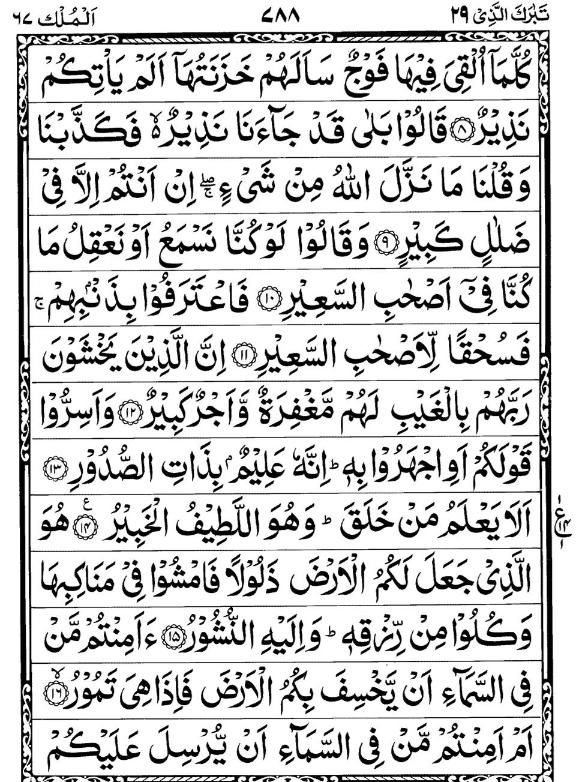 تَبٰرَكَ الَّذِیْ ٢٩ ٧٨٨ اَلْمُلْك ٦٧
كُلَّمَاۤ اُلْقِیَ فِیْهَا فَوْجٌ سَاَلَهُمْ خَزَنَتُهَاۤ اَلَمْ یَاْتِكُمْ
نَذِیْرٌ ﴿٨﴾ قَالُوْا بَلٰی قَدْ جَآءَنَا نَذِیْرٌ ۙ۬ فَكَذَّبْنَا
وَ قُلْنَا مَا نَزَّلَ اللّٰهُ مِنْ شَیْءٍ ۖۚ اِنْ اَنْتُمْ اِلَّا فِیْ
ضَلٰلٍ كَبِیْرٍ ﴿٩﴾ وَ قَالُوْا لَوْ كُنَّا نَسْمَعُ اَوْ نَعْقِلُ مَا
كُنَّا فِیْۤ اَصْحٰبِ السَّعِیْرِ ﴿١٠﴾ فَاعْتَرَفُوْا بِذَنْۢبِهِمْ ۚ
فَسُحْقًا لِّاَصْحٰبِ السَّعِیْرِ ﴿١١﴾ اِنَّ الَّذِیْنَ یَخْشَوْنَ
رَبَّهُمْ بِالْغَیْبِ لَهُمْ مَّغْفِرَةٌ وَّ اَجْرٌ كَبِیْرٌ ﴿١٢﴾ وَ اَسِرُّوْا
قَوْلَكُمْ اَوِ اجْهَرُوْا بِهٖ ؕ اِنَّهٗ عَلِیْمٌۢ بِذَاتِ الصُّدُوْرِ ﴿١٣﴾
اَلَا یَعْلَمُ مَنْ خَلَقَ ؕ وَ هُوَ اللَّطِیْفُ الْخَبِیْرُ ﴿١٤﴾ ع هُوَ
ع ١٤ ١
الَّذِیْ جَعَلَ لَكُمُ الْاَرْضَ ذَلُوْلًا فَامْشُوْا فِیْ مَنَاكِبِهَا
وَ كُلُوْا مِنْ رِّزْقِهٖ ؕ وَ اِلَیْهِ النُّشُوْرُ ﴿١٥﴾ ءَاَمِنْتُمْ مَّنْ
فِی السَّمَآءِ اَنْ یَّخْسِفَ بِكُمُ الْاَرْضَ فَاِذَا هِیَ تَمُوْرُ ﴿١٦﴾ ۙ
اَمْ اَمِنْتُمْ مَّنْ فِی السَّمَآءِ اَنْ یُّرْسِلَ عَلَیْكُمْ